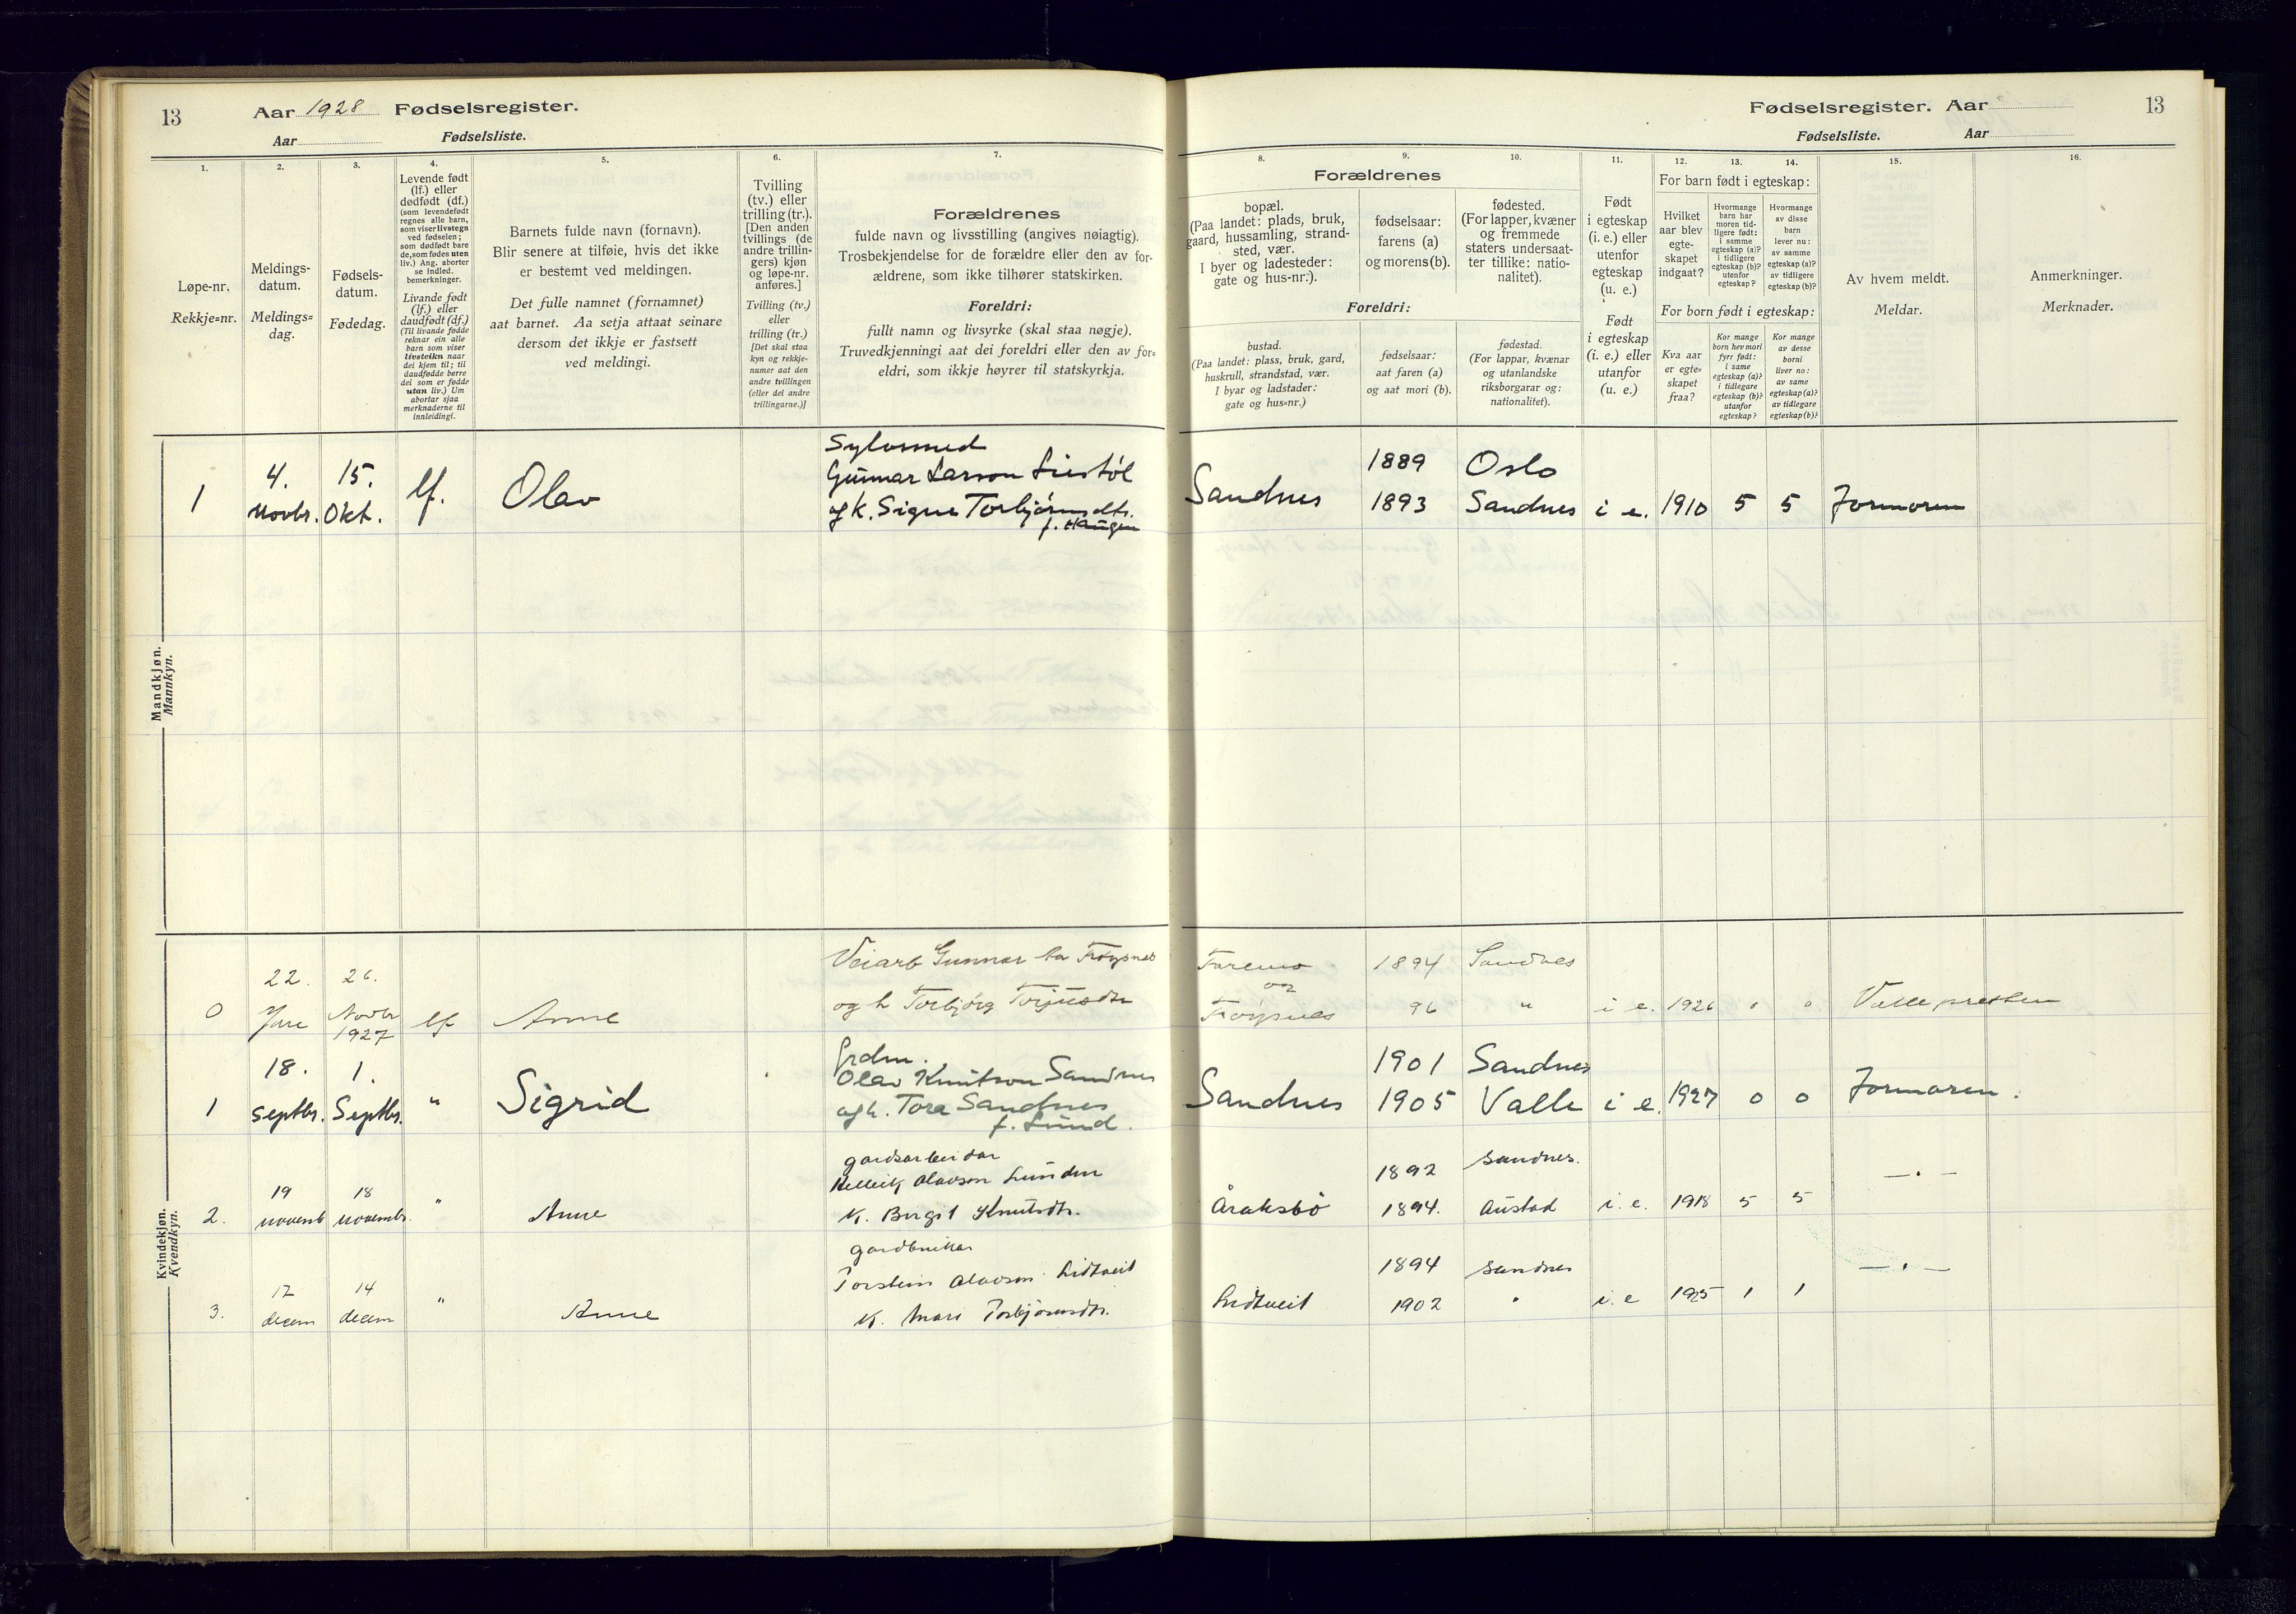 13
Aar 1928 Fødselsregister.
Aar Fødselsliste.
1.
2.
3.
4.
5.
6.
7.
Løpe-nr.
Rekkje=nr.
Meldings-
datum.
Meldings=
dag.
Fødsels-
datum.
Fødedag.
Levende født
(lf.) eller
dødfødt (df.)
(som levendefødt
regnes alle barn,
som viser livstegn
ved fødselen;
som dødfødt bare
de, som fødes uten
liv.) Ang. aborter
se indled.
bemerkninger.
Livande født
(lf.) eller
daudfødt (df.)
(Til livande fødde
reknar ein alle
barn som viser
livsteikn naar
dei kjem til; til
daudfødde berre
dei som er fødde
utan liv.) Um
abortar sjaa
merknaderne til
innleidingi.
Barnets fulde navn (fornavn).
Blir senere at tilføie, hvis det ikke
er bestemt ved meldingen.
Det fulle namnet (fornamnet)
aat barnet. Aa setja attaat seinare
dersom det ikkje er fastsett
ved meldingi.
Tvilling
(tv.) eller
trilling (tr.).
[Den anden
tvillings (de
andre trillin-
gers) kjøn
og løpe-nr.
anføres.]
Tvilling (tv.)
eller
trilling (tr.)
[Det skal staa
kyn og rekkje-
numer aat den
andre tvillingen
(eller dei andre
trillingarne.)]
Forældrenes
fulde navn og livsstilling (angives nøiagtig).
Trosbekjendelse for de forældre eller den av for-
ældrene, som ikke tilhører statskirken.
Foreldri:
fullt namn og livsyrke (skal staa nøgje).
Truvedkjenningi aat dei foreldri eller den av for=
eldri, som ikkje høyrer til statskyrkja.
Mandkjøn.
Mannkyn.
1
4.
Novbr.
15.
Okt.
lf.
Olav
Sylvsmed
Gunnar Larson Liestøl
og k. Signe Torbjørnsdtr.
f. Haugen
Kvindekjøn.
Kvendkyn.
0
22.
26.
Novbr
1927
lf
Anne
Veiarb Gunnar Frøysnes
og h Torbjørg Torjusdtr
1
18.
Septbr.
1.
Septbr.
"
Sigrid
grdm.
Olav Knutson Sandnes
og h. Tora Sandnes
f. Lund.
2.
19
novemb
18
novembr.
"
Anne
gardsarbeidar
Olavson Lunden
K. Birgit Knutsdtr.
3.
17
decem
14
decem
"
Anne
gardbrukar
Torstein Olavson Lidtveit
K. Mari Torbjørnsdtr.
Fødselsregister. Aar 13
Fødselsliste. Aar
8.
9.
10.
11.
12.
13.
14.
15.
16.
Forældrenes
bopæl.
(Paa landet: plads, bruk,
gaard, hussamling, strand-
sted, vær.
I byer og ladesteder:
gate og hus-nr.).
fødselsaar:
farens (a)
og morens (b).
fødested.
(For lapper, kvæner
og fremmede
staters undersaat-
ter tillike: natio-
nalitet).
Foreldri:
bustad.
(Paa landet: plass, bruk, gard,
huskrull, strandstad, vær.
I byar og ladstader:
gate og hus=nr.)
fødselsaar:
aat faren (a)
og aat mori (b).
fødestad.
(For lappar, kvænar
og utanlandske
riksborgarar og:
nationalitet).
Født
i egteskap
(i. e.) eller
utenfor
egteskap
(u. e.)
Født
i egteskap
(i. e.) eller
utanfor
(u. e.)
For barn født i egteskap:
Hvilket
aar blev
egte-
skapet
indgaat?
Hvormange
barn har
moren tid-
ligere født:
i samme
egteskap (a)?
i tidligere
egteskap (b)?
utenfor
egteskap?
Hvormange
av disse
barn
lever nu:
av samme
egteskap (a)?
av tidligere
egteskap (b)?
For born født i egteskap:
Kva aar
er egte=
skapet
fraa?
Kor mange
born hev mori
fyrr født:
i same
egteskap (a)?
i tidlegare
egteskap (b)?
utanfor
egteskap?
Kor mange
av desse
borni
liver no:
av same
egteskap (a)?
av tidlegare
egteskap (b)?
Av hvem meldt.
Meldar.
Anmerkninger.
Merknader.
Sandnes
1889 Oslo
1893 Sandnes i e. 1910 5 5 Jormoren
Faremo
og
Frøysnes
1894 Sandnes
96 " i e. 1926 0 0 Valle presten
Sandnes
1901 Sandnes
1905 Valle i e. 1927 0 0 Jormoren.
Åraksbø
1892 Sandnes.
1894. Austad i. e. 1918 5 5 —.—
Lidtveit
1894 Sandnes
1902 " i. e 1925 1 1 —.—